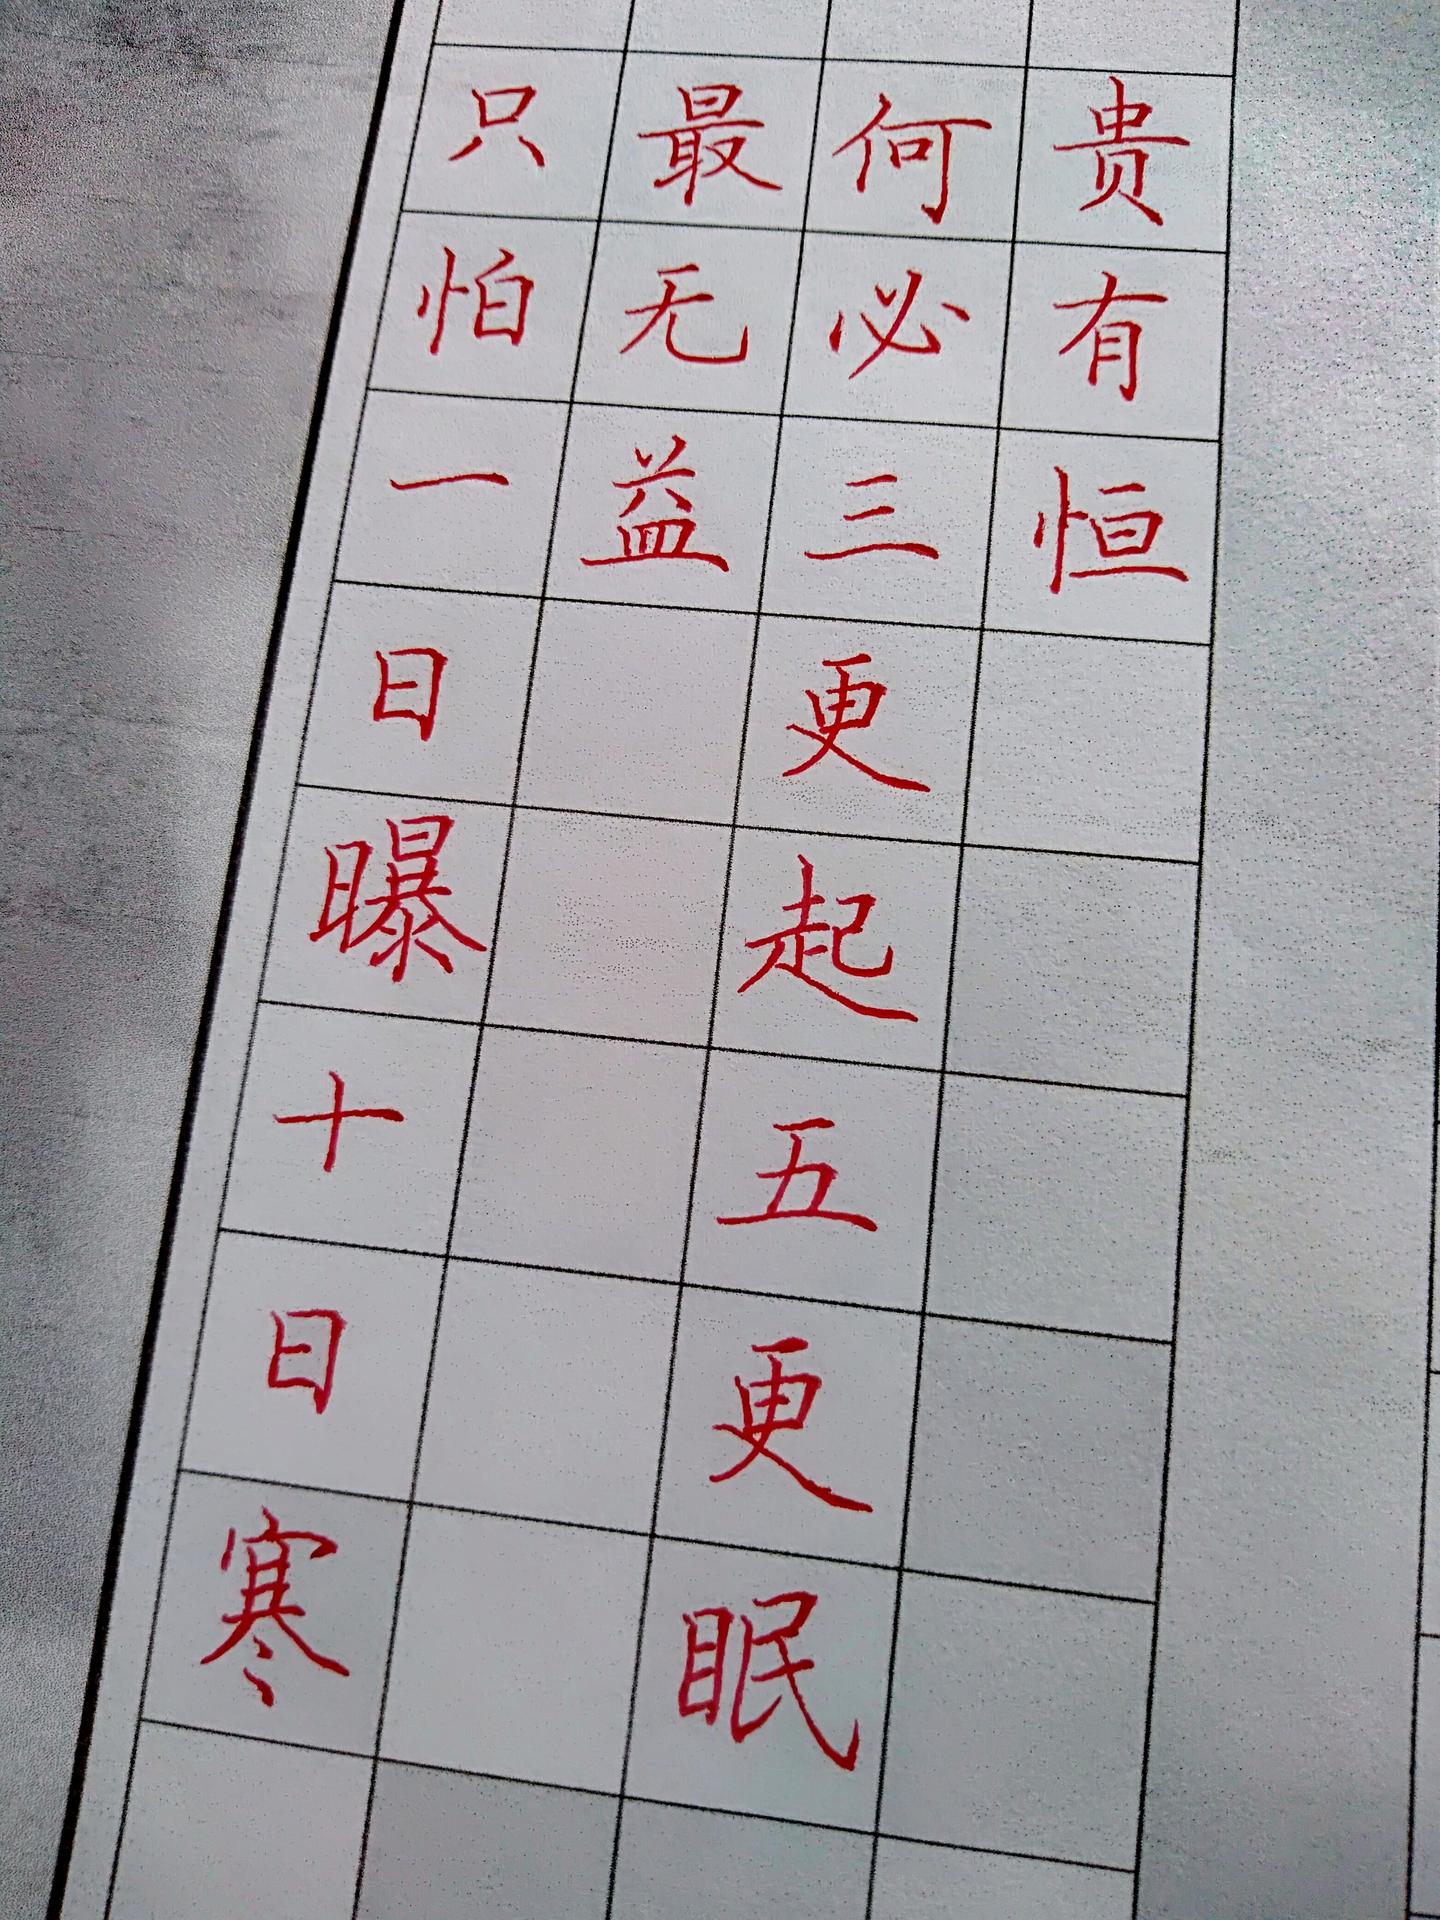 贵有恒
何必三更起五更眠
最无益
只怕一日曝十日寒